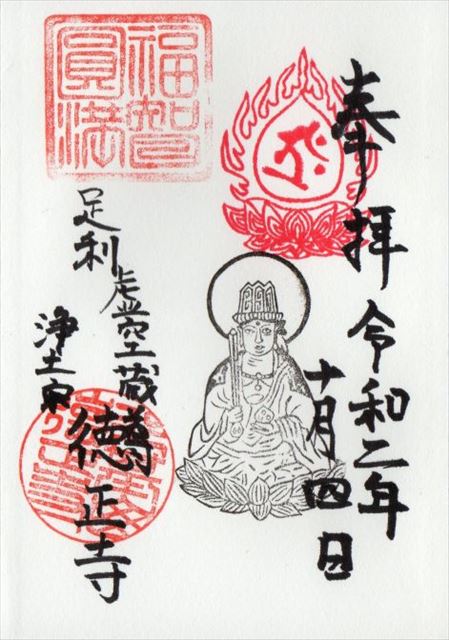 奉拝
令和二年
十月四日
福智
圓満
足利
虚空蔵尊
浄土宗
徳正寺